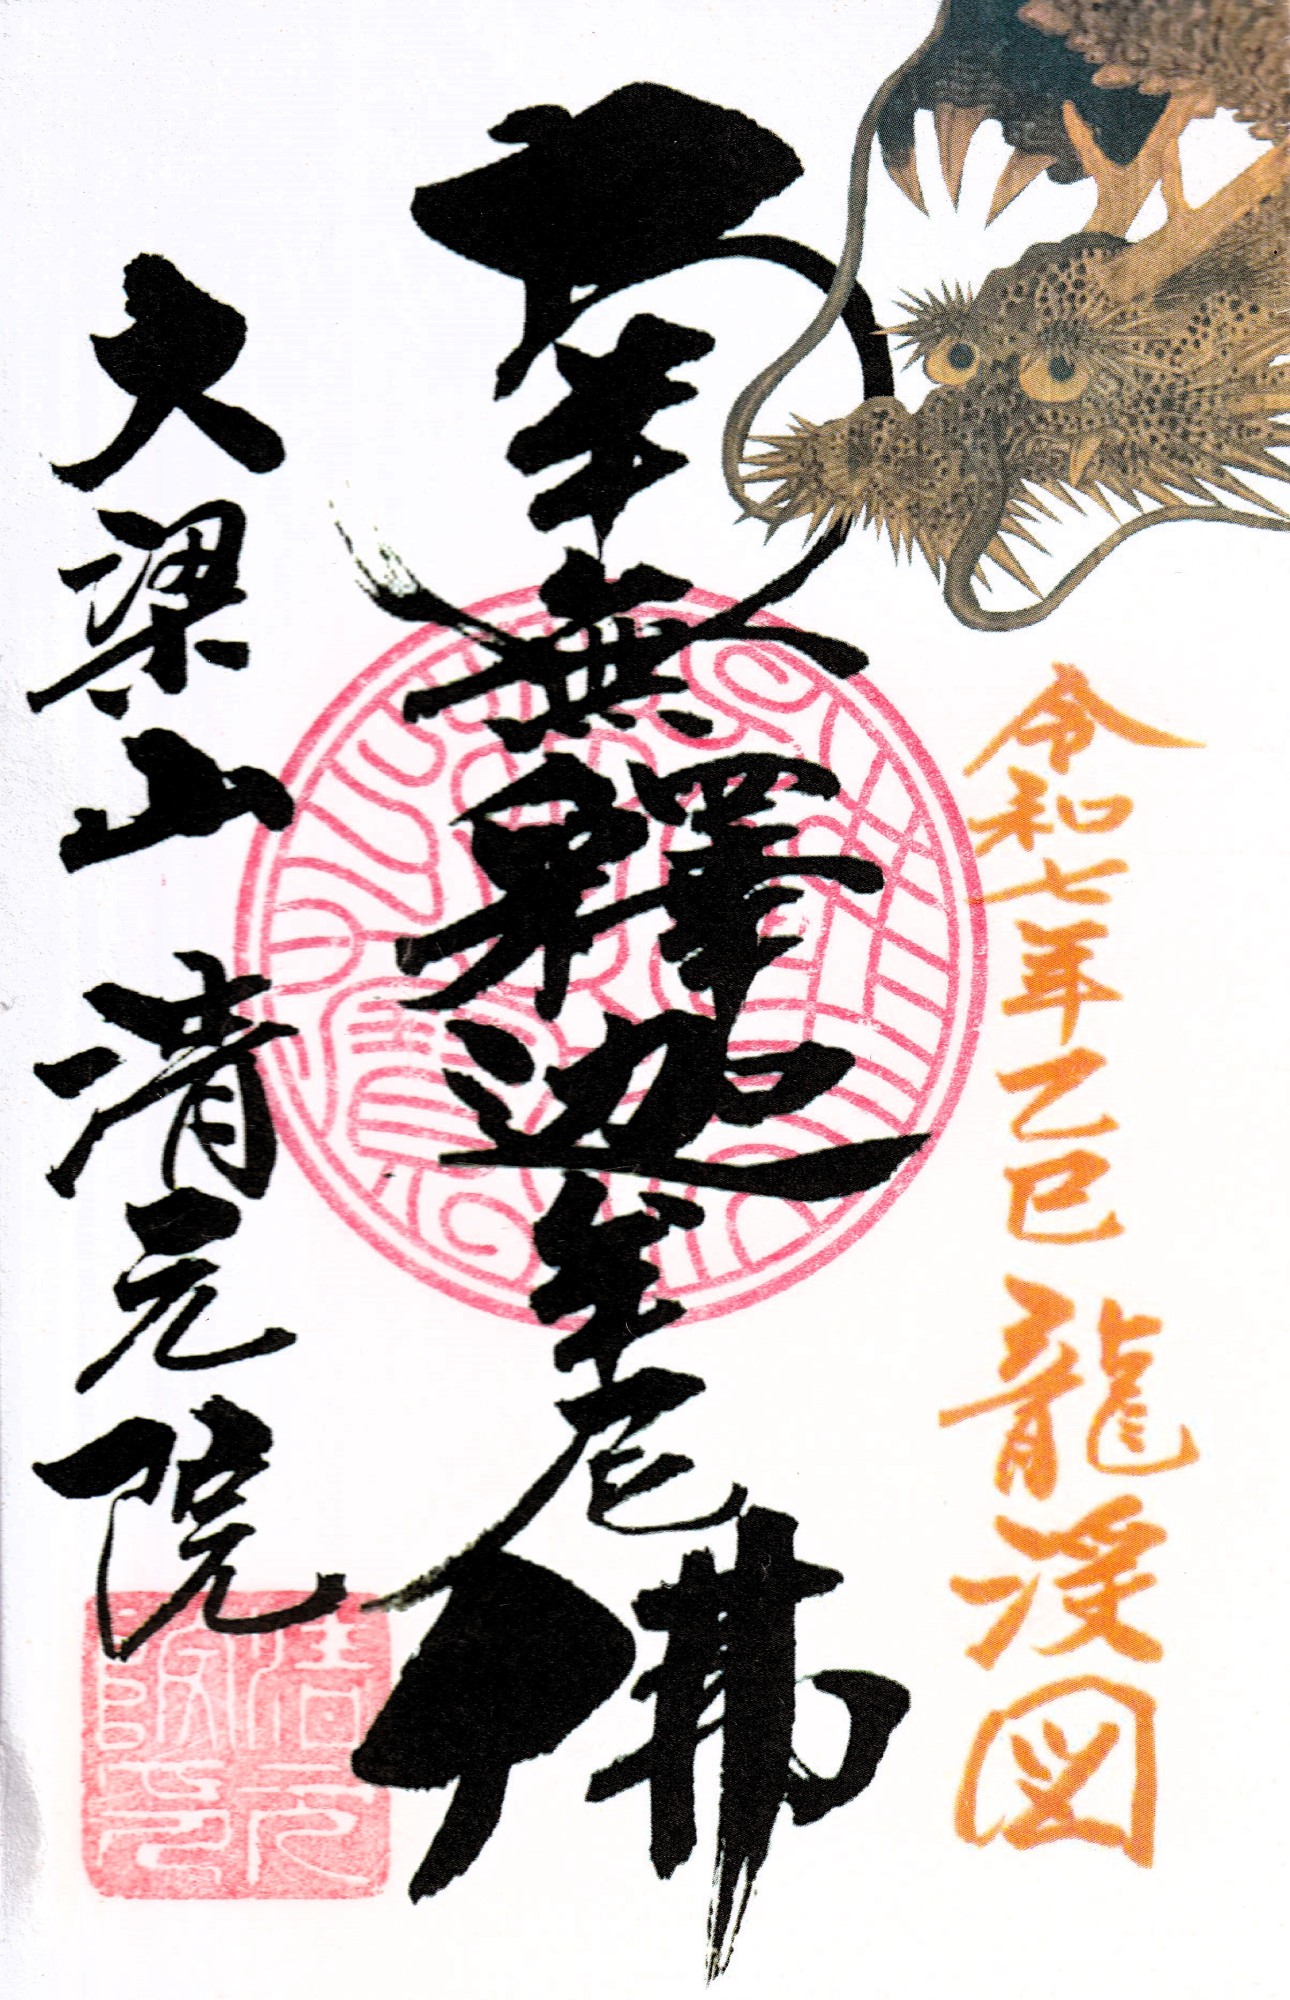 令和七年乙巳 龍渓図
南無釋迦牟尼佛
大梁山 清元院